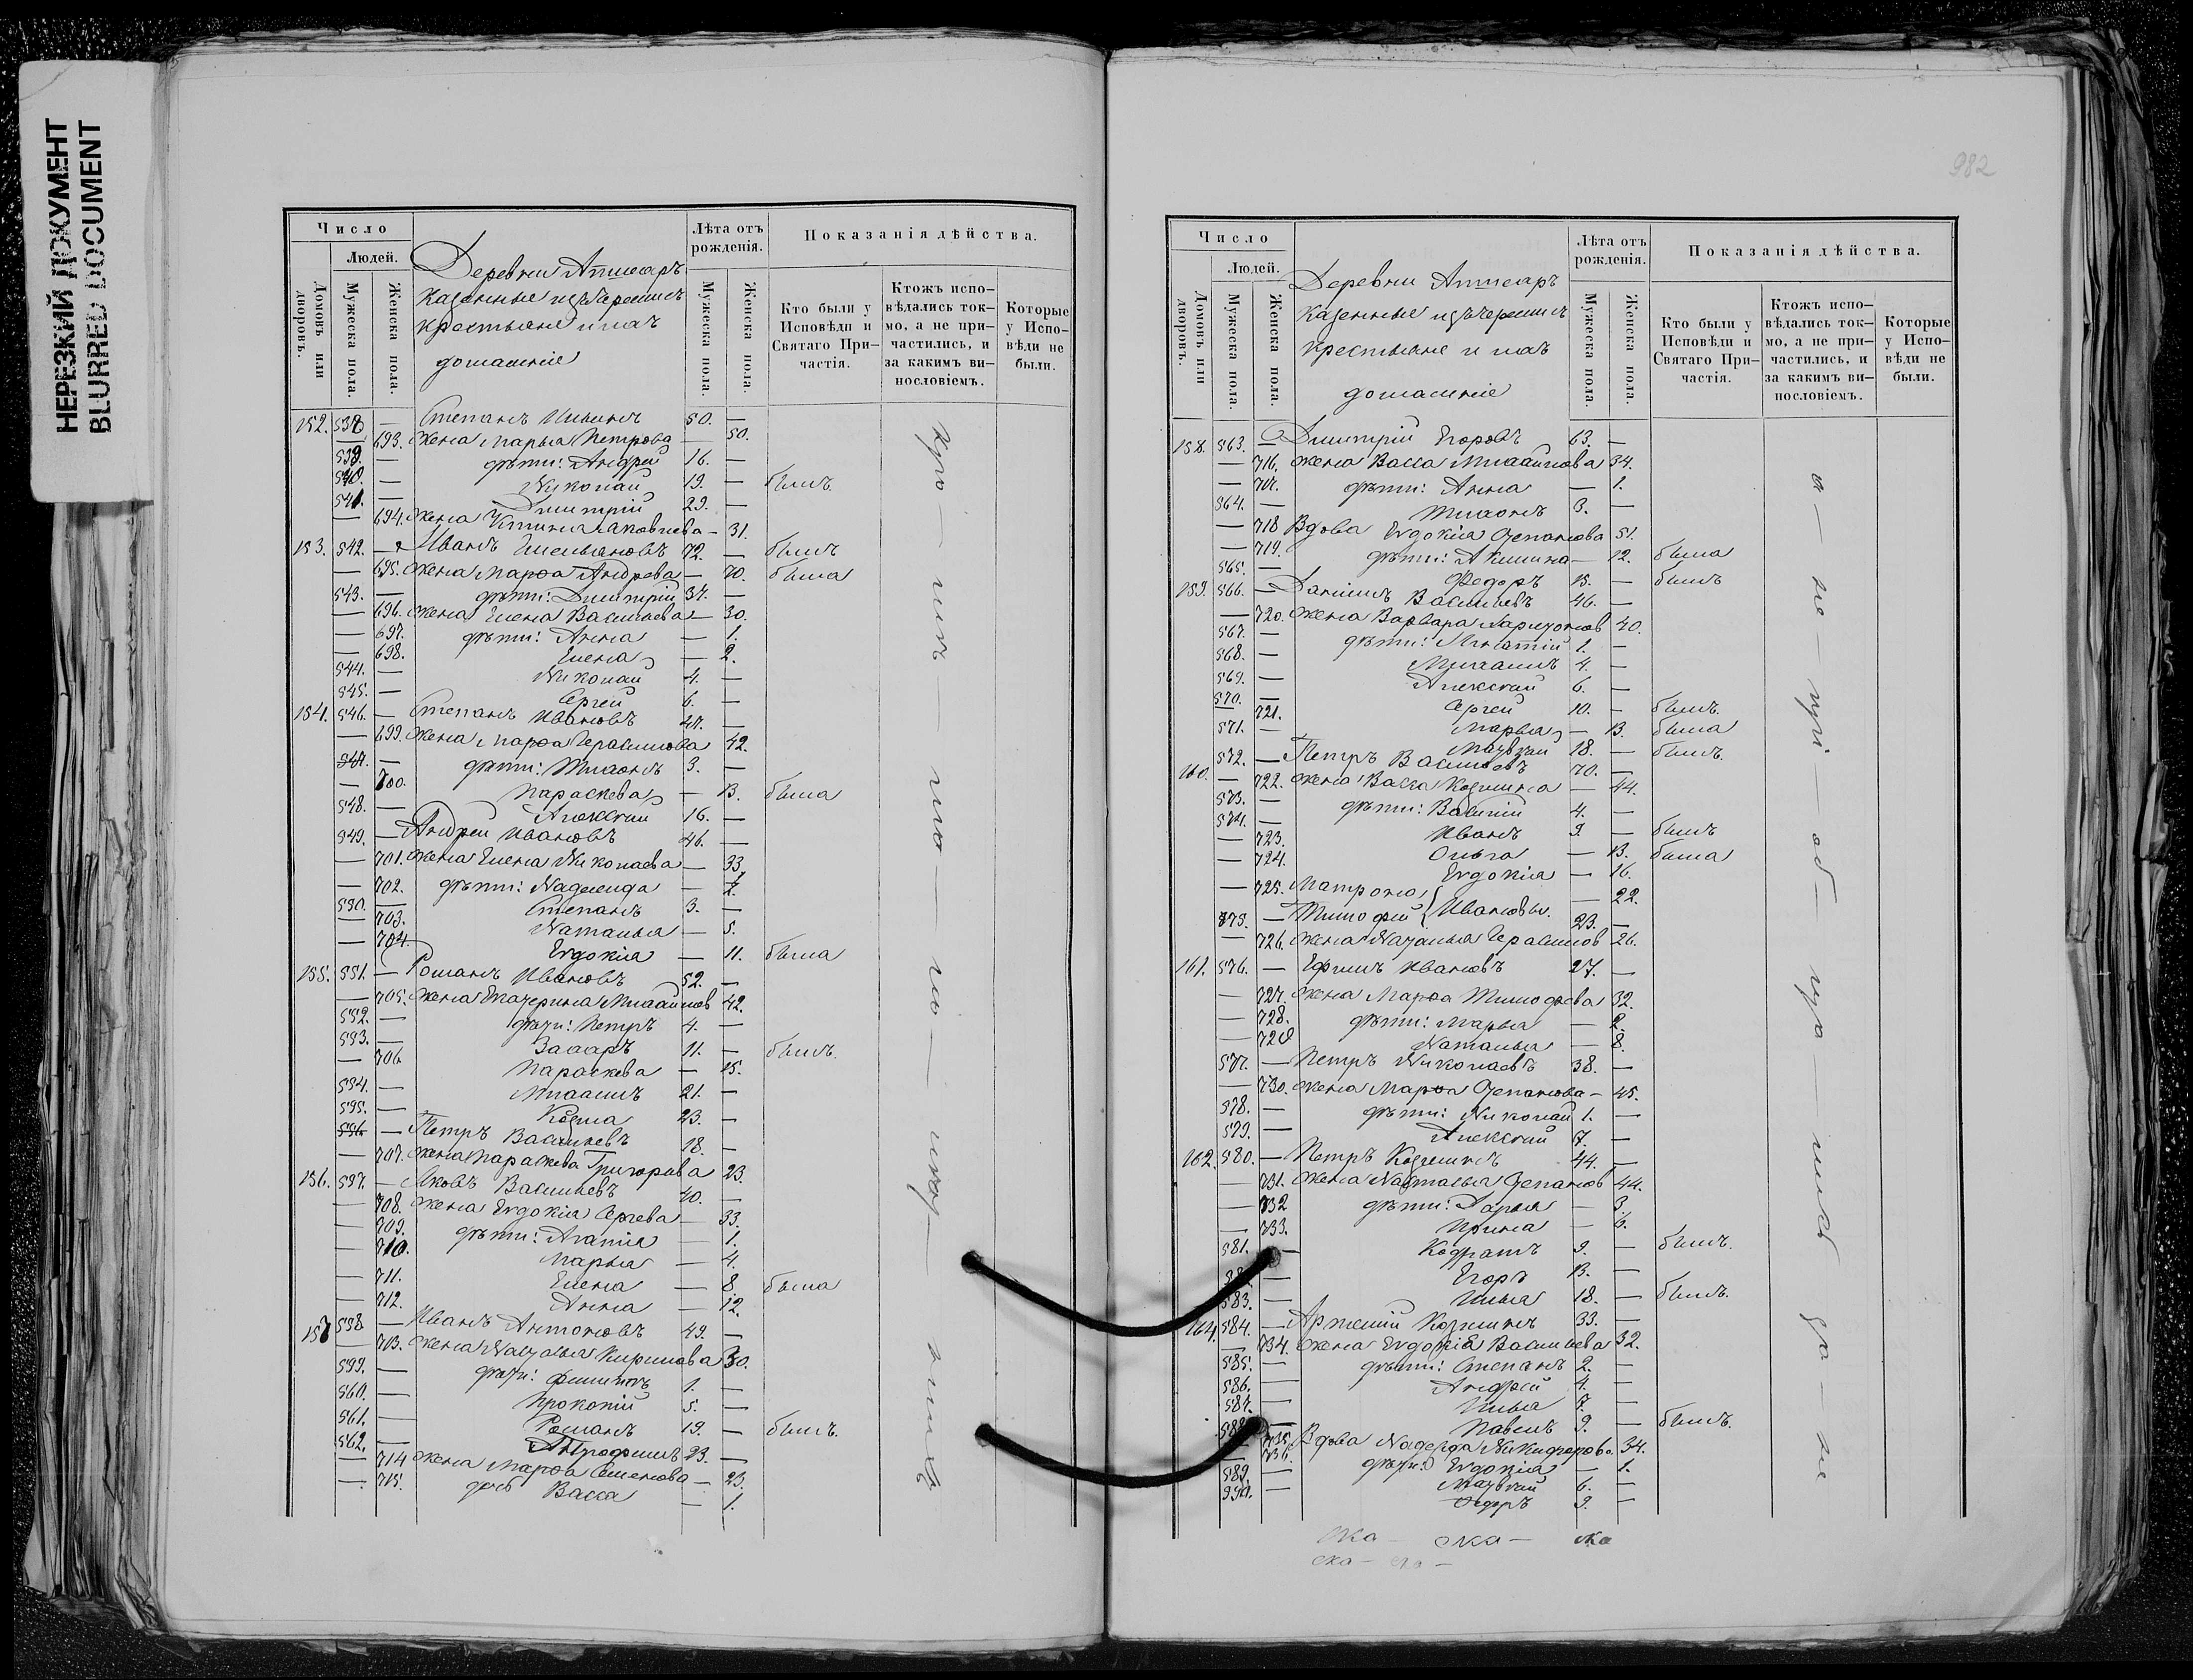 НЕРЕЗКИЙ ДОКУМЕНТ
BLURRED DOCUMENT
Число
Людей.
Домовъ или дворовъ.
Мужеска пола.
Женска пола.
Деревни
казенные изъ черемисъ
крестьяне и ихъ
домашніе
Лѣта отъ рожденія.
Мужеска пола.
Женска пола.
Показанія дѣйства.
Кто были у Исповѣди и Святаго Причастія.
Ктожъ исповѣдались токмо, а не причастились, и за какимъ винословіемъ.
Которые у Исповѣди не были.
152. 538 — Степанъ 50. —
— 693. жена Марья Петрова — 50.
539. — дѣти: Андрей 16. —
540. — Николай 19. — былъ
541. — Димитрій 29. —
— 694. жена Устинья Яковлева — 31.
153. 542. — Иванъ Емельяновъ 72. — былъ
— 695. жена Марѳа Андреева — 70. была
543. — дѣти: Димитрій 37. —
— 696. жена Елена Васильева — 30.
— 697. дѣти: Анна — 1.
— 698. Елена — 2.
544. — Николай 4. —
545. — Сергей 6. —
154. 546. — Степанъ Ивановъ 47. —
— 699. жена Марѳа Герасимова 42.
547. — дѣти: Тихонъ 3. —
— 700. Параскева — 13. была
548. — Алексѣй 16. —
549. — Андрей Ивановъ 46. —
— 701. жена Елена Николаева — 33.
— 702. дѣти: Надежда —
550. — Степанъ 3. —
— 703. Наталья — 5.
— 704. Евдокія — 11. была
155. 551. — Романъ Ивановъ 52. —
— 705. жена Екатерина Михайлов 42.
552. — дѣти: Петръ 4. —
553. — Захаръ 11. — былъ.
— 706. Параскева — 15.
554. — Михаилъ 21. —
555. — Козма 23. —
556. — Петръ Васильевъ 18. —
— 707. жена Параскева Григорьева 23.
156. 557. — Яковъ Васильевъ 40. —
— 708. жена Евдокія Сергева — 33.
— 709. дѣти: Агапія — 1.
— 710. Марья — 4.
— 711. Елена — 8. была
— 712. Анна — 12.
157 558 — Иванъ Антоновъ 49. —
— 713. жена Наталья Кирилова 50.
559. — дѣти: Филипъ 1. —
560. — Прокопій 5. —
561. — Романъ 19. — былъ.
562. — Трофимъ 23. —
— 714 жена Марѳа Семенова — 23.
— 715. дочь Васса — 1.
982
Число
Людей.
Домовъ или дворовъ.
Мужеска пола.
Женска пола.
Деревни
казенные изъ черемисъ
крестьяне и ихъ
домашніе
Лѣта отъ рожденія.
Мужеска пола.
Женска пола.
Показанія дѣйства.
Кто были у Исповѣди и Святаго Причастія.
Ктожъ исповѣдались токмо, а не причастились, и за какимъ винословіемъ.
Которые у Исповѣди не были.
158. 563. — Димитрій Егоровъ 63. —
— 716. жена Васса Михайлова 34.
— 717. дѣти: Анна — 1.
564. — Тихонъ 3. —
— 718 Вдова Евдокія Степанова 51.
— 719. дѣти: Акилина — 12. была
565. — Ѳедоръ 15. — былъ
159. 566. — Даніилъ Васильевъ 46. —
— 720. жена Варвара Харитонов 40.
567. — дѣти: Игнатій 1. —
568. — Михаилъ 4. —
569. — Алексѣй 6. —
570. — Сергей 10. — былъ.
— 721. Марья — 13. была
571. — Матвѣй 18. — былъ.
160. 572. — Петръ Васильевъ 70. —
— 722. жена Васса Козмина — 44.
573. — дѣти: Василій 4. —
574. — Иванъ 9. — былъ
— 723. Ольга — 13. была
— 724. Евдокія — 16.
— 725. Матрона } Ивановы. — 22.
575. — Тимофей 23. —
— 726. жена Наталья Герасимов 26.
161. 576. — Ефимъ Ивановъ 27. —
— 727. жена Марѳа Тимофеева 32.
— 728. дѣти: Марья — 2.
— 729 Наталья — 8.
577. — Петръ Николаевъ 38. —
— 730. жена Марѳа Степанова — 45.
578. — дѣти: Николай 1. —
579. — Алексѣй 7. —
162. 580. — Петръ Козминъ 44. —
— 731. жена Наталья Степанов 44.
— 732 дѣти: Дарья — 3.
— 733. Ирина — 6.
581. — Кодратъ 9. — былъ.
— Егоръ 13. —
583. — Илья 18. — былъ.
164. 584. — Артемій Козминъ 33. —
— 734. жена Евдокія Васильева 32.
585. — дѣти: Степанъ 2. —
586. — Андрей 4. —
587. — Илья 7. —
588. — Павелъ 9. — былъ.
735. Вдова Надежда Никифорова. 34.
736. дѣти: Евдокія — 1.
589. — Матвѣй 6. —
590. — Ѳедоръ 9. —